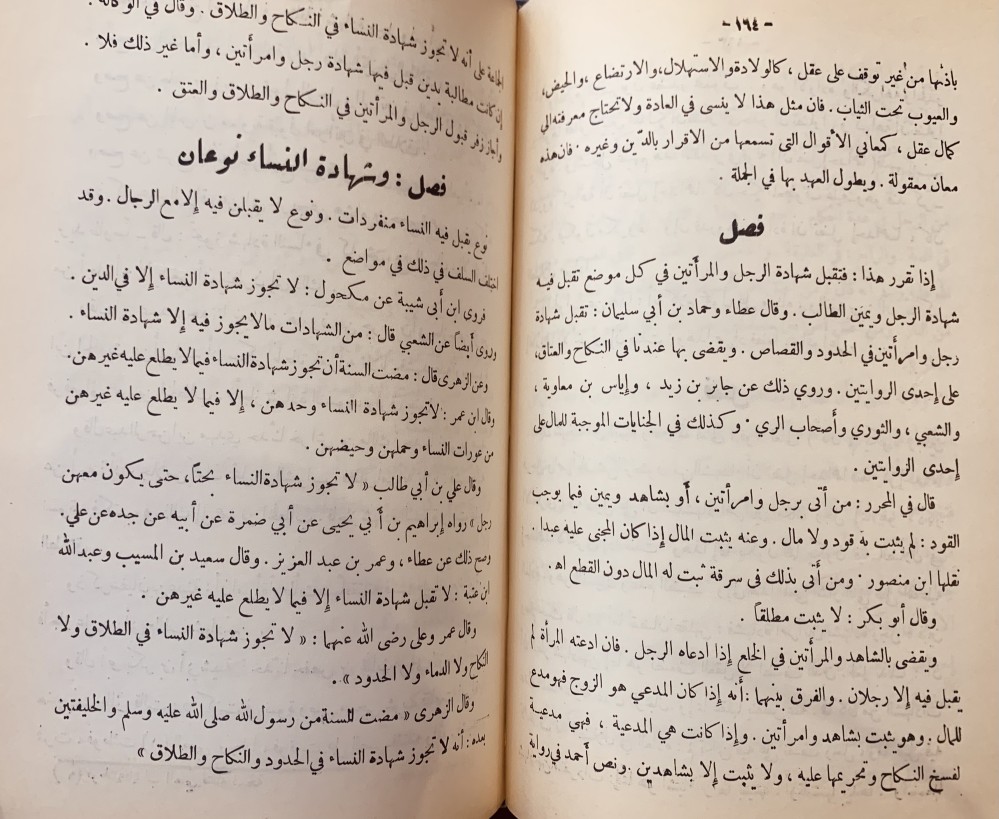 - ١٦٤ -
بأذنها من غير توقف على عقل ، كالولادة والاستهلال، والارتضاع ، والحيض،
والعيوب تحت الثياب . فان مثل هذا لا ينسى في العادة ولا تحتاج معرفته إلى
كمال عقل ، كمعاني الأقوال التى تسمعها من الاقرار بالدّين وغيره . فان هذه
معان معقولة . ويطول العهد بها في الجملة .
فصل
إذا تقرر هذا : فتقبل شهادة الرجل والمرأتين في كل موضع تقبل فيه
شهادة الرجل ويمين الطالب . وقال عطاء وحماد بن أبي سليمان : تقبل شهادة
رجل وامرأتين في الحدود والقصاص . ويقضى بها عندنا في النكاح والعتاق،
على إحدى الروايتين . وروي ذلك عن جابر بن زيد ، وإياس بن معاوية ،
والشعبي ، والثوري وأصحاب الري . وكذلك في الجنايات الموجبة للمال على
إحدى الروايتين .
قال في المحرر : من أتى برجل وامرأتين ، أو بشاهد ويمين فيما يوجب
القود : لم يثبت به قود ولا مال . وعنه يثبت المال إذا كان المجنى عليه عبدا .
نقلها ابن منصور . ومن أتى بذلك فى سرقة ثبت له المال دون القطع اهـ .
وقال أبو بكر : لا يثبت مطلقاً .
ويقضى بالشاهد والمرأتين في الخلع إذا ادعاه الرجل . فان ادعته المرأة لم
يقبل فيه إلا رجلان . والفرق بينهما : أنه إذا كان المدعي هو الزوج فهو مدع
للمال . وهو يثبت بشاهد وامرأتين . وإذا كانت هي المدعية ، فهي مدعية
لفسخ النكاح وتحريمها عليه ، ولا يثبت إلا بشاهدين . ونص أحمد في رواية
الجماعة على أنه لا تجوز شهادة النساء في النكاح والطلاق . وقال في الوكالة :
إن كانت مطالبة بدين قبل فيها شهادة رجل وامرأتين ، وأما غير ذلك فلا .
وأجاز زفر قبول الرجل والمرأتين في النكاح والطلاق والعتق .
فصل : وشهادة النساء نوعان
نوع يقبل فيه النساء منفردات . ونوع لا يقبلن فيه إلا مع الرجال . وقد
اختلف السلف في ذلك في مواضع .
فروى ابن أبي شيبة عن مكحول : لا تجوز شهادة النساء إلا في الدين .
وروى أيضاً عن الشعبي قال : من الشهادات مالا يجوز فيه إلا شهادة النساء .
وعن الزهرى قال : مضت السنة أن تجوز شهادة النساء فيما لا يطلع عليه غيرهن.
وقال ابن عمر : لا تجوز شهادة النساء وحدهن ، إلا فيما لا يطلع عليه غيرهن
من عورات النساء وحملهن وحيضهن .
وقال علي بن أبي طالب « لا تجوز شهادة النساء بحتاً، حتى يكون معهن
رجل » رواه إبراهيم بن أبي يحيى عن أبي ضمرة عن أبيه عن جده عن علي.
وصح ذلك عن عطاء ، وعمر بن عبد العزيز . وقال سعيد بن المسيب وعبد الله
ابن عتبة : لا تقبل شهادة النساء إلا فيما لا يطلع عليه غيرهن .
وقال عمر وعلى رضى الله عنهما : « لا تجوز شهادة النساء في الطلاق ولا
النكاح ولا الدماء ولا الحدود » .
وقال الزهرى « مضت السنة من رسول الله صلى الله عليه وسلم والخليفتين
بعده : أنه لا تجوز شهادة النساء في الحدود والنكاح والطلاق »